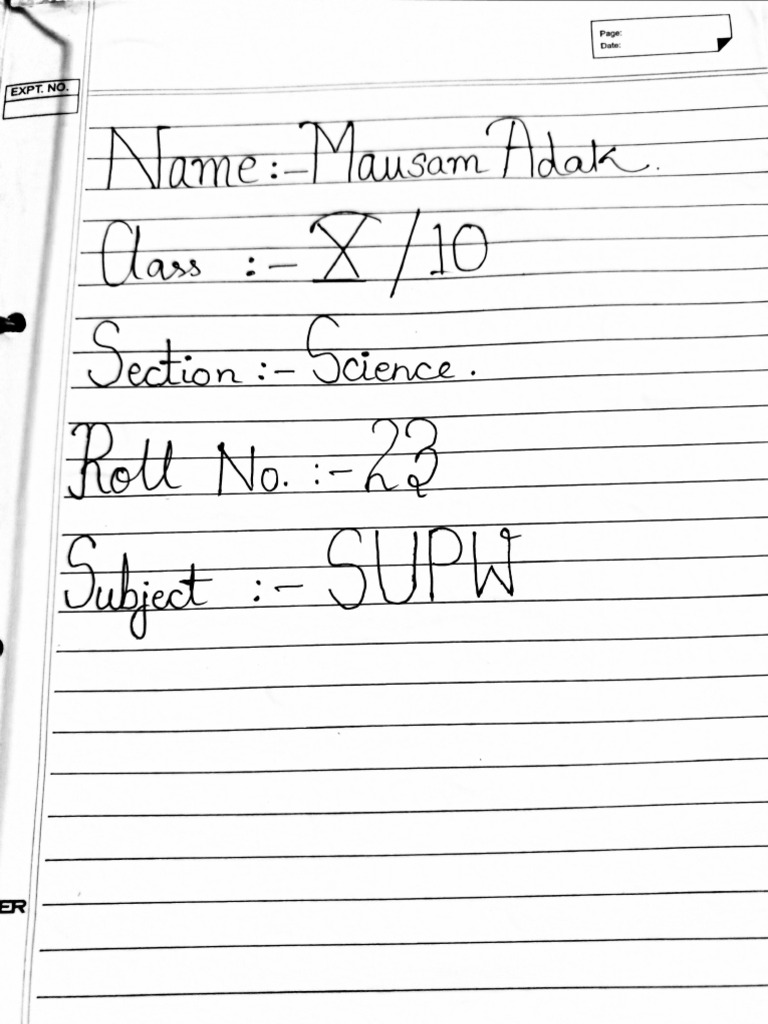 Page:
Date:
EXPT. NO.
Name:- Mausam Adak.
Class :- X/10
Section :- Science.
Roll No. :- 23
Subject :- SUPW
ER